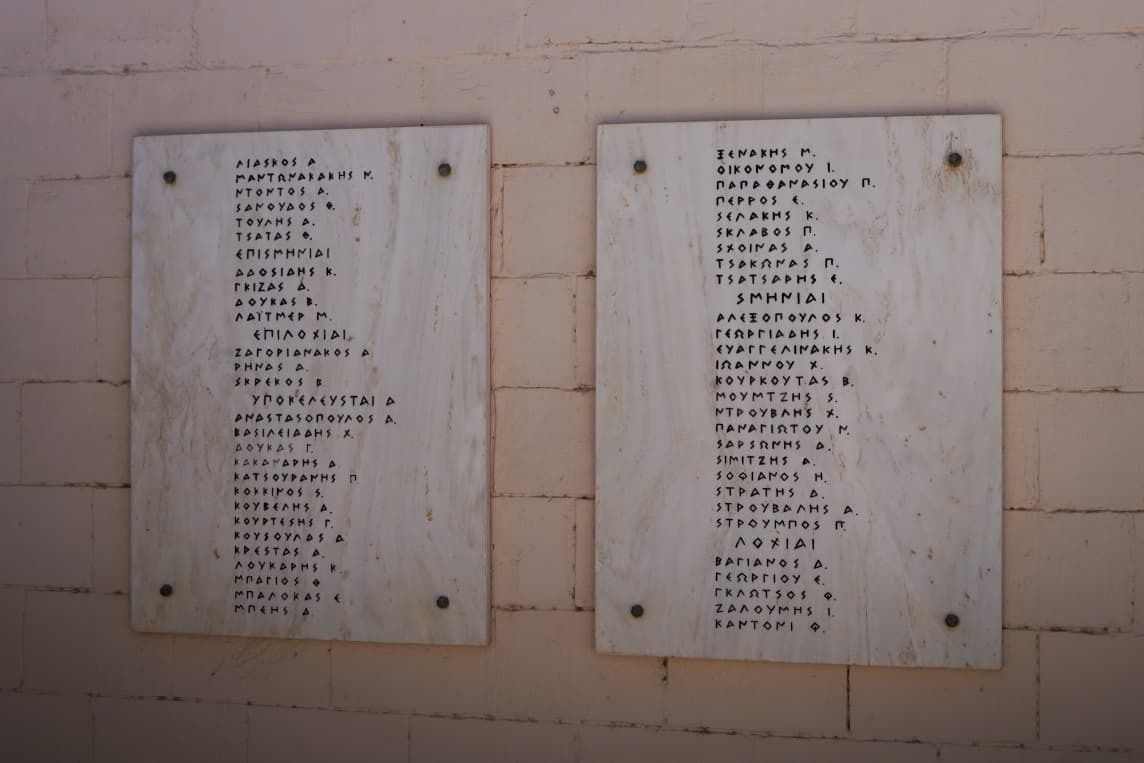 ΛΙΑΣΚΟΣ Α
ΜΑΝΤΩΝΑΚΑΚΗΣ Ν.
ΝΤΟΝΤΟΣ Α.
ΣΑΝΟΥΔΟΣ Θ.
ΤΟΥΛΗΣ Δ.
ΤΣΑΤΑΣ Θ.
ΕΠΙΣΜΗΝΙΑΙ
ΑΔΟΣΙΔΗΣ Κ.
ΓΚΙΖΑΣ Δ.
ΔΟΥΚΑΣ Β.
ΛΑΪΤΜΕΡ Μ.
ΕΠΙΛΟΧΙΑΙ
ΖΑΓΟΡΙΑΝΑΚΟΣ Α
ΡΗΝΑΣ Α.
ΣΚΡΕΚΟΣ Β
ΥΠΟΚΕΛΕΥΣΤΑΙ Α
ΑΝΑΣΤΑΣΟΠΟΥΛΟΣ Δ.
ΒΑΣΙΛΕΙΑΔΗΣ Χ.
ΔΟΥΚΑΣ Γ.
ΚΑΚΑΝΑΡΗΣ Δ
ΚΑΤΣΟΥΡΑΝΗΣ Π
ΚΟΚΚΙΝΟΣ Σ.
ΚΟΥΒΕΛΗΣ Δ.
ΚΟΥΡΤΕΣΗΣ Γ.
ΚΟΥΣΟΥΛΑΣ Δ
ΚΡΕΣΤΑΣ Δ.
ΛΟΥΚΑΡΗΣ Κ.
ΜΠΑΓΙΟΣ Θ
ΜΠΑΛΟΚΑΣ Ε
ΜΠΕΗΣ Δ
ΞΕΝΑΚΗΣ Μ.
ΟΙΚΟΝΟΜΟΥ Ι.
ΠΑΠΑΘΑΝΑΣΙΟΥ Π.
ΠΕΡΡΟΣ Ε.
ΣΕΛΑΚΗΣ Κ.
ΣΚΛΑΒΟΣ Π.
ΣΧΟΙΝΑΣ Δ.
ΤΣΑΚΩΝΑΣ Π.
ΤΣΑΤΣΑΡΗΣ Ε.
ΣΜΗΝΙΑΙ
ΑΛΕΞΟΠΟΥΛΟΣ Κ.
ΓΕΩΡΓΙΑΔΗΣ Ι.
ΕΥΑΓΓΕΛΙΝΑΚΗΣ Κ.
ΙΩΑΝΝΟΥ Χ.
ΚΟΥΡΚΟΥΤΑΣ Β.
ΜΟΥΜΤΖΗΣ Σ.
ΝΤΡΟΥΒΛΗΣ Χ.
ΠΑΝΑΓΙΩΤΟΥ Ν.
ΣΑΡΣΩΝΗΣ Δ.
ΣΙΜΙΤΖΗΣ Α.
ΣΟΦΙΑΝΟΣ Η.
ΣΤΡΑΤΗΣ Δ.
ΣΤΡΟΥΒΑΛΗΣ Δ.
ΣΤΡΟΥΜΠΟΣ Π.
ΛΟΧΙΑΙ
ΒΑΓΙΑΝΟΣ Δ.
ΓΕΩΡΓΙΟΥ Ε.
ΓΚΛΩΤΣΟΣ Φ.
ΖΑΛΟΥΜΗΣ Ι.
ΚΑΝΤΟΝΙ Φ.